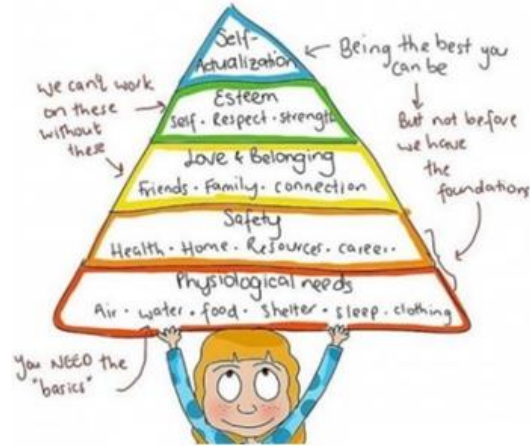 Self-
Actualization
Being the best you
can be
But not before
we have
the
foundations
we can't work
on these
without
these
Esteem
Self • Respect • strength
Love & Belonging
Friends • Family • connection
Safety
Health • Home • Resources • career
Physiological needs
Air • water • food • Shelter • sleep • clothing
You NEED the
"basics"